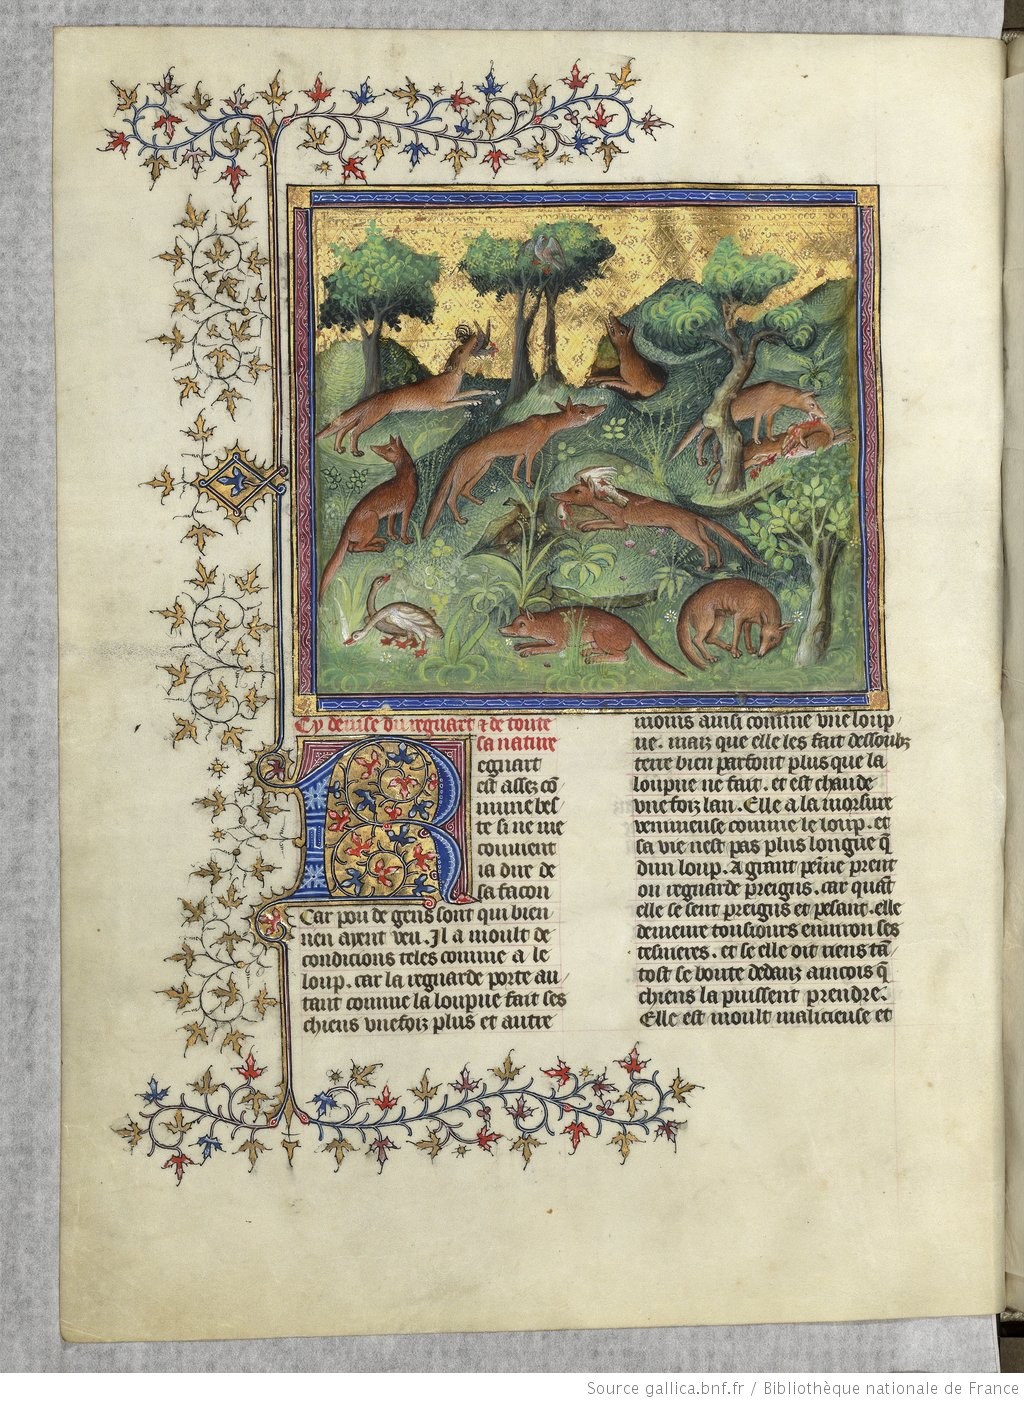 Cy devise du regnart & de toute
sa nature
Regnart
est assez cō
mune bes
te si ne me
convient
ia dire de
sa facon
Car pou de gens sont qui bien
nen ayent veu. Il a moult de
condicions teles comme a le
loup. car la regnarde porte au
tant comme la loupue fait ses
chiens vnefoiz plus et autre
moins ainsi comme vne loup
ue. maiz que elle les fait dessoubz
terre bien parfont plus que la
loupue ne fait. et est chaude
vne foiz lan. Elle a la morsure
venimeuse comme le loup. et
sa vie nest pas plus longue q̄
dun loup. A grant peine prent
on regnarde preigns. car quāt
elle se sent preigns et pesant. elle
demeure tousiours enuiron ses
tesnieres. et se elle oit riens tā
tost se boute dedanz aincois q̄
chiens la puissent prendre.
Elle est moult malicieuse et
Source gallica.bnf.fr / Bibliothèque nationale de France